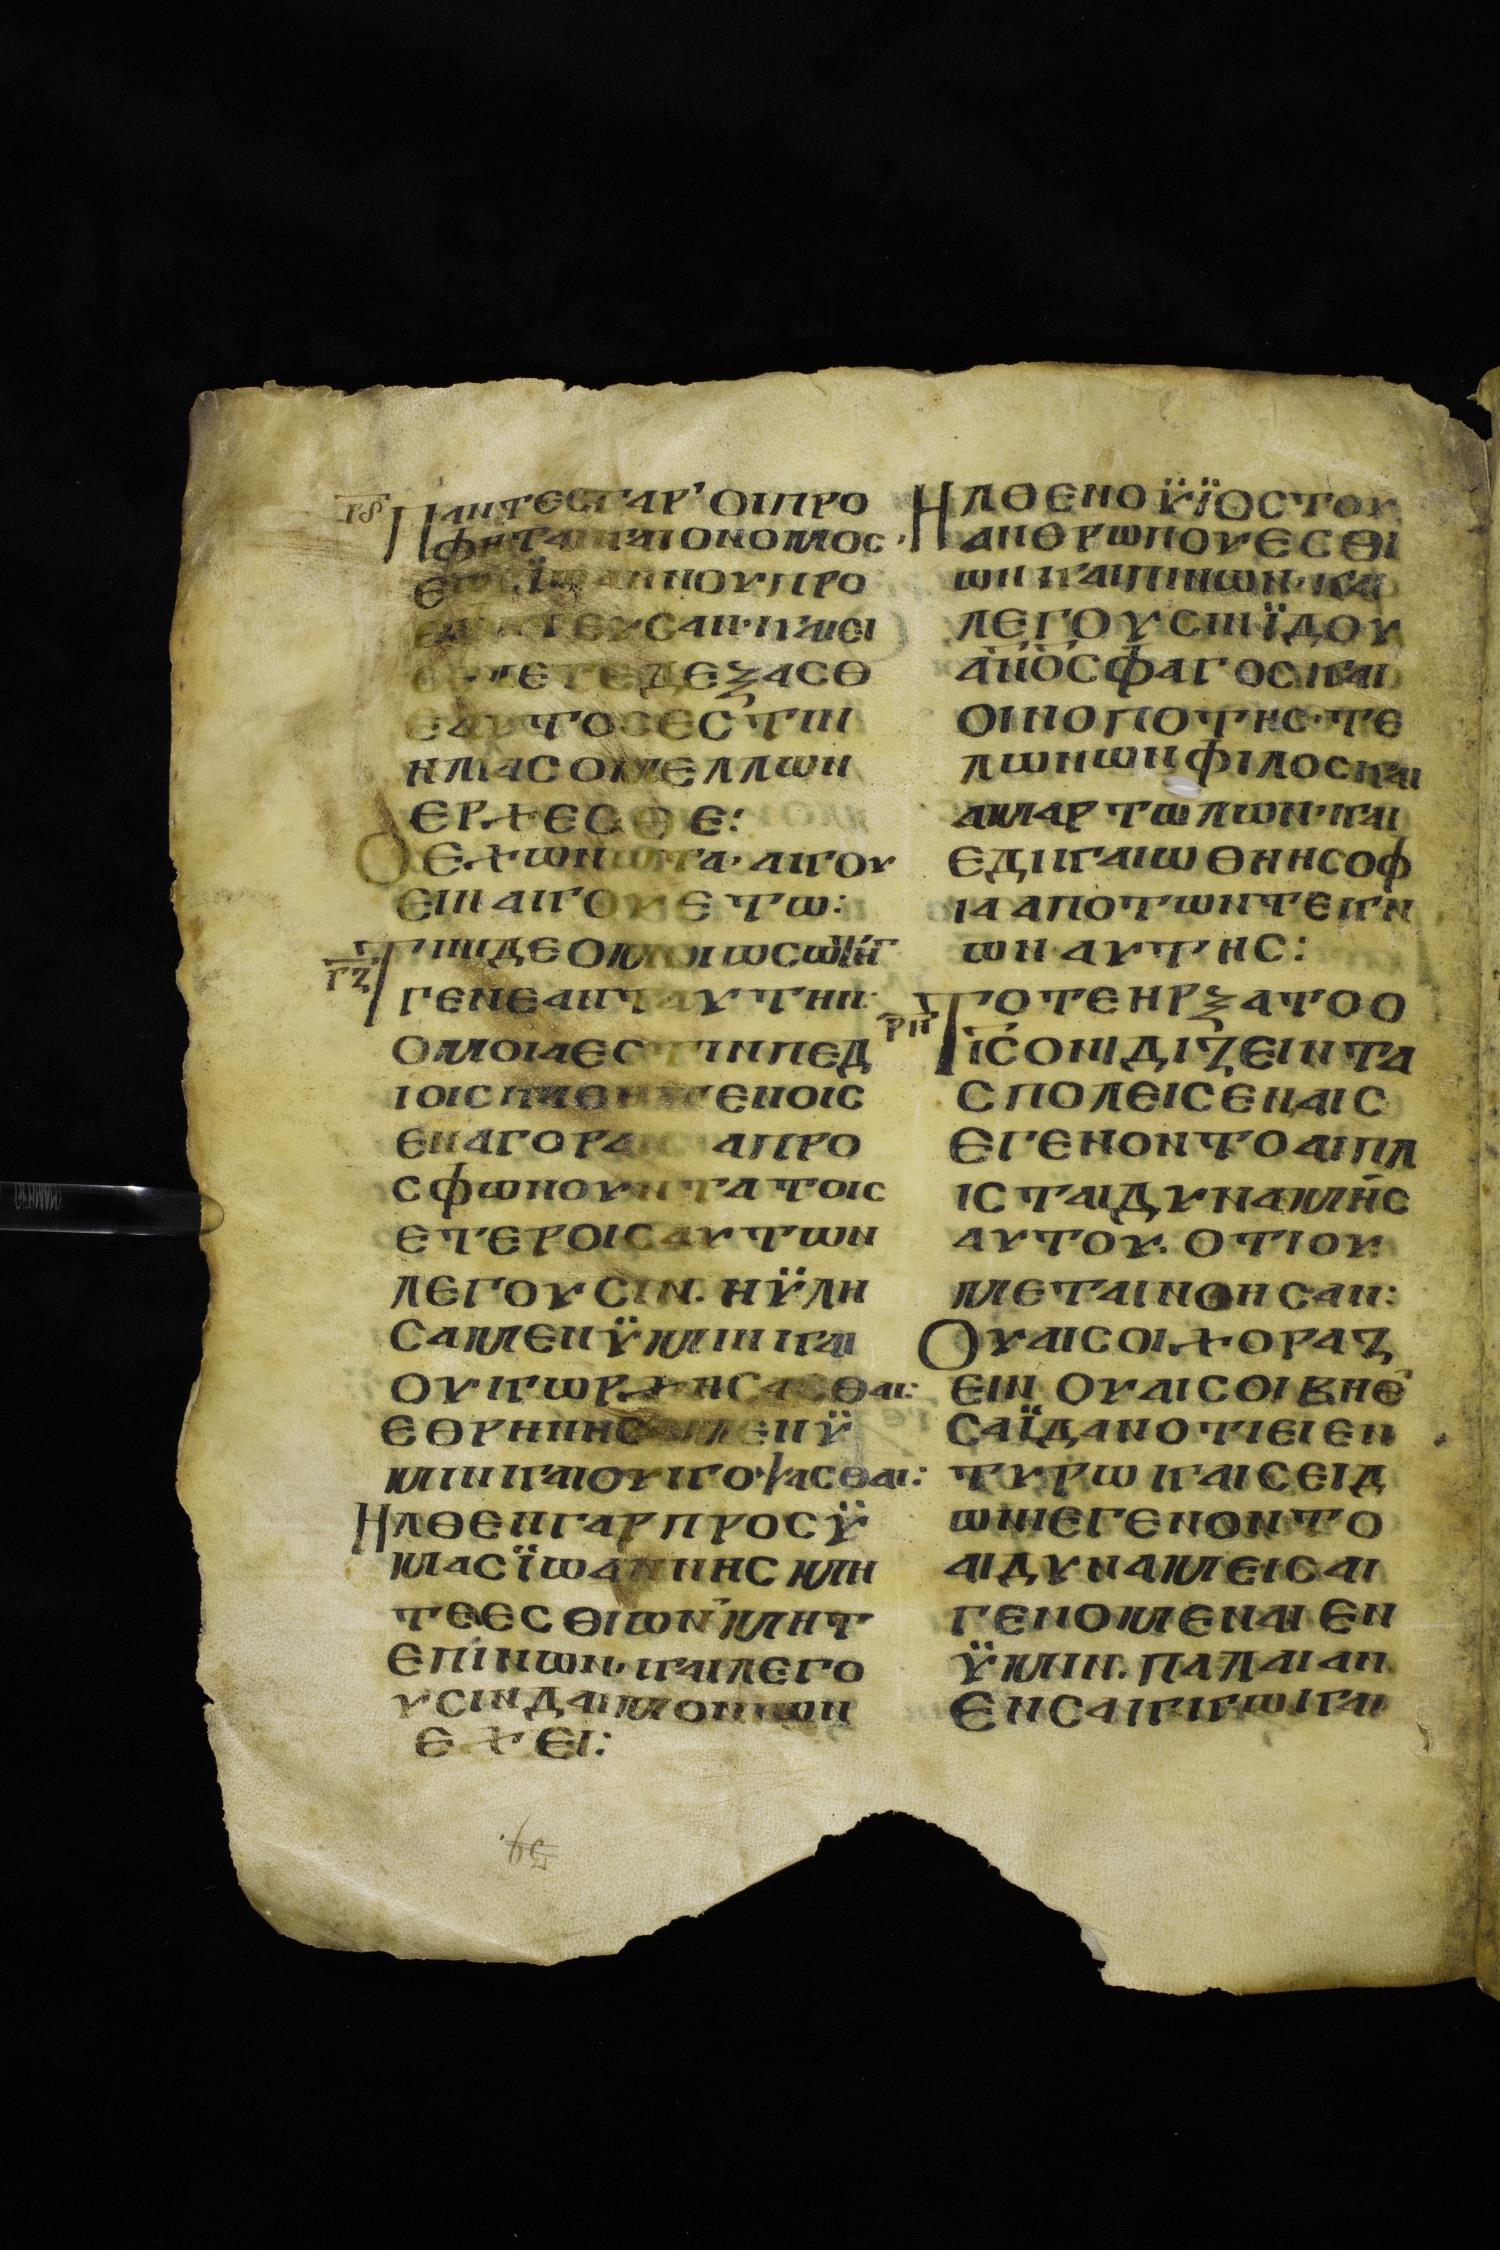 ΡϚ
ΠΑΝΤΕСΓΑΡ ΟΙΠΡΟ
ΦΗΤΑΙΚΑΙΟΝΟΜΟС·
ΕΩС ΪΩΑΝΝΟΥΠΡΟ
ΕΦΗΤΕΥСΑΝ·ΚΑΙΕΙ
ΘΕΛΕΤΕΔΕΞΑСΘ
ΕΑΥΤΟСΕСΤΙΝ
ΗΛΙΑСΟΜΕΛΛΩΝ
ΕΡΧΕСΘΕ:
ΟΕΧΩΝΩΤΑ·ΑΚΟΥ
ΕΙΝΑΚΟΥΕΤΩ:
ΡΖ
ΤΙΝΙΔΕΟΜΟΙΩСΩΤΗ
ΓΕΝΕΑΝΤΑΥΤΗΝ·
ΟΜΟΙΑΕСΤΙΝΠΕΔ
ΙΟΙСΚΑΘΗΜΕΝΟΙС
ΕΝΑΓΟΡΑΙС ΑΠΡΟ
СΦΩΝΟΥΝΤΑΤΟΙС
ΕΤΕΡΟΙСΑΥΤΩΝ
ΛΕΓΟΥСΙΝ·ΗΫΛΗ
СΑΜΕΝΫΜΙΝΚΑΙ
ΟΥΚΩΡΧΗСΑСΘΑΙ:
ΕΘΡΗΝΗСΑΜΕΝΫ
ΜΙΝΚΑΙΟΥΚΟΨΑСΘΑΙ:
ΗΛΘΕΝΓΑΡΠΡΟСΫ
ΜΑСΪΩΑΝΝΗСΜΗ
ΤΕΕСΘΙΩΝ ΜΗΤ
ΕΠΙΝΩΝ·ΚΑΙΛΕΓΟ
ΥСΙΝΔΑΙΜΟΝΙΩΝ
ΕΧΕΙ:
ΗΛΘΕΝΟΫΪΟСΤΟΥ
ΑΝΘΡΩΠΟΥΕСΘΙ
ΩΝΚΑΙΠΙΝΩΝ·ΚΑΙ
ΛΕΓΟΥСΙΝΪΔΟΥ
ΑΝΟСΦΑΓΟСΚΑΙ
ΟΙΝΟΠΟΤΗС·ΤΕ
ΛΩΝΩΝΦΙΛΟСΚΑΙ
ΑΜΑΡΤΩΛΩΝ·ΚΑΙ
ΕΔΙΚΑΙΩΘΗΗСΟΦ
ΙΑΑΠΟΤΩΝΤΕΚΝ
ΩΝΑΥΤΗС:
ΡΗ
ΤΟΤΕΗΡΞΑΤΟΟ
ΙСΟΝΙΔΙΖΕΙΝΤΑ
СΠΟΛΕΙСΕΝΑΙС
ΕΓΕΝΟΝΤΟΑΙΠΛ
ΙСΤΑΙΔΥΝΑΜΗС
ΑΥΤΟΥ·ΟΤΙΟΥ
ΜΕΤΑΙΝΟΗСΑΝ:
ΟΥΑΙСΟΙΧΟΡΑΖ
ΕΙΝ ΟΥΑΙСΟΙΒΗΘ
СΑΪΔΑΝΟΤΙΕΙΕΝ
ΤΥΡΩΚΑΙСΕΙΔ
ΩΝΙΕΓΕΝΟΝΤΟ
ΑΙΔΥΝΑΜΕΙСΑΙ
ΓΕΝΟΜΕΝΑΙΕΝ
ΫΜΙΝ·ΠΑΛΑΙΑΝ
ΕΝСΑΚΚΩΚΑΙ